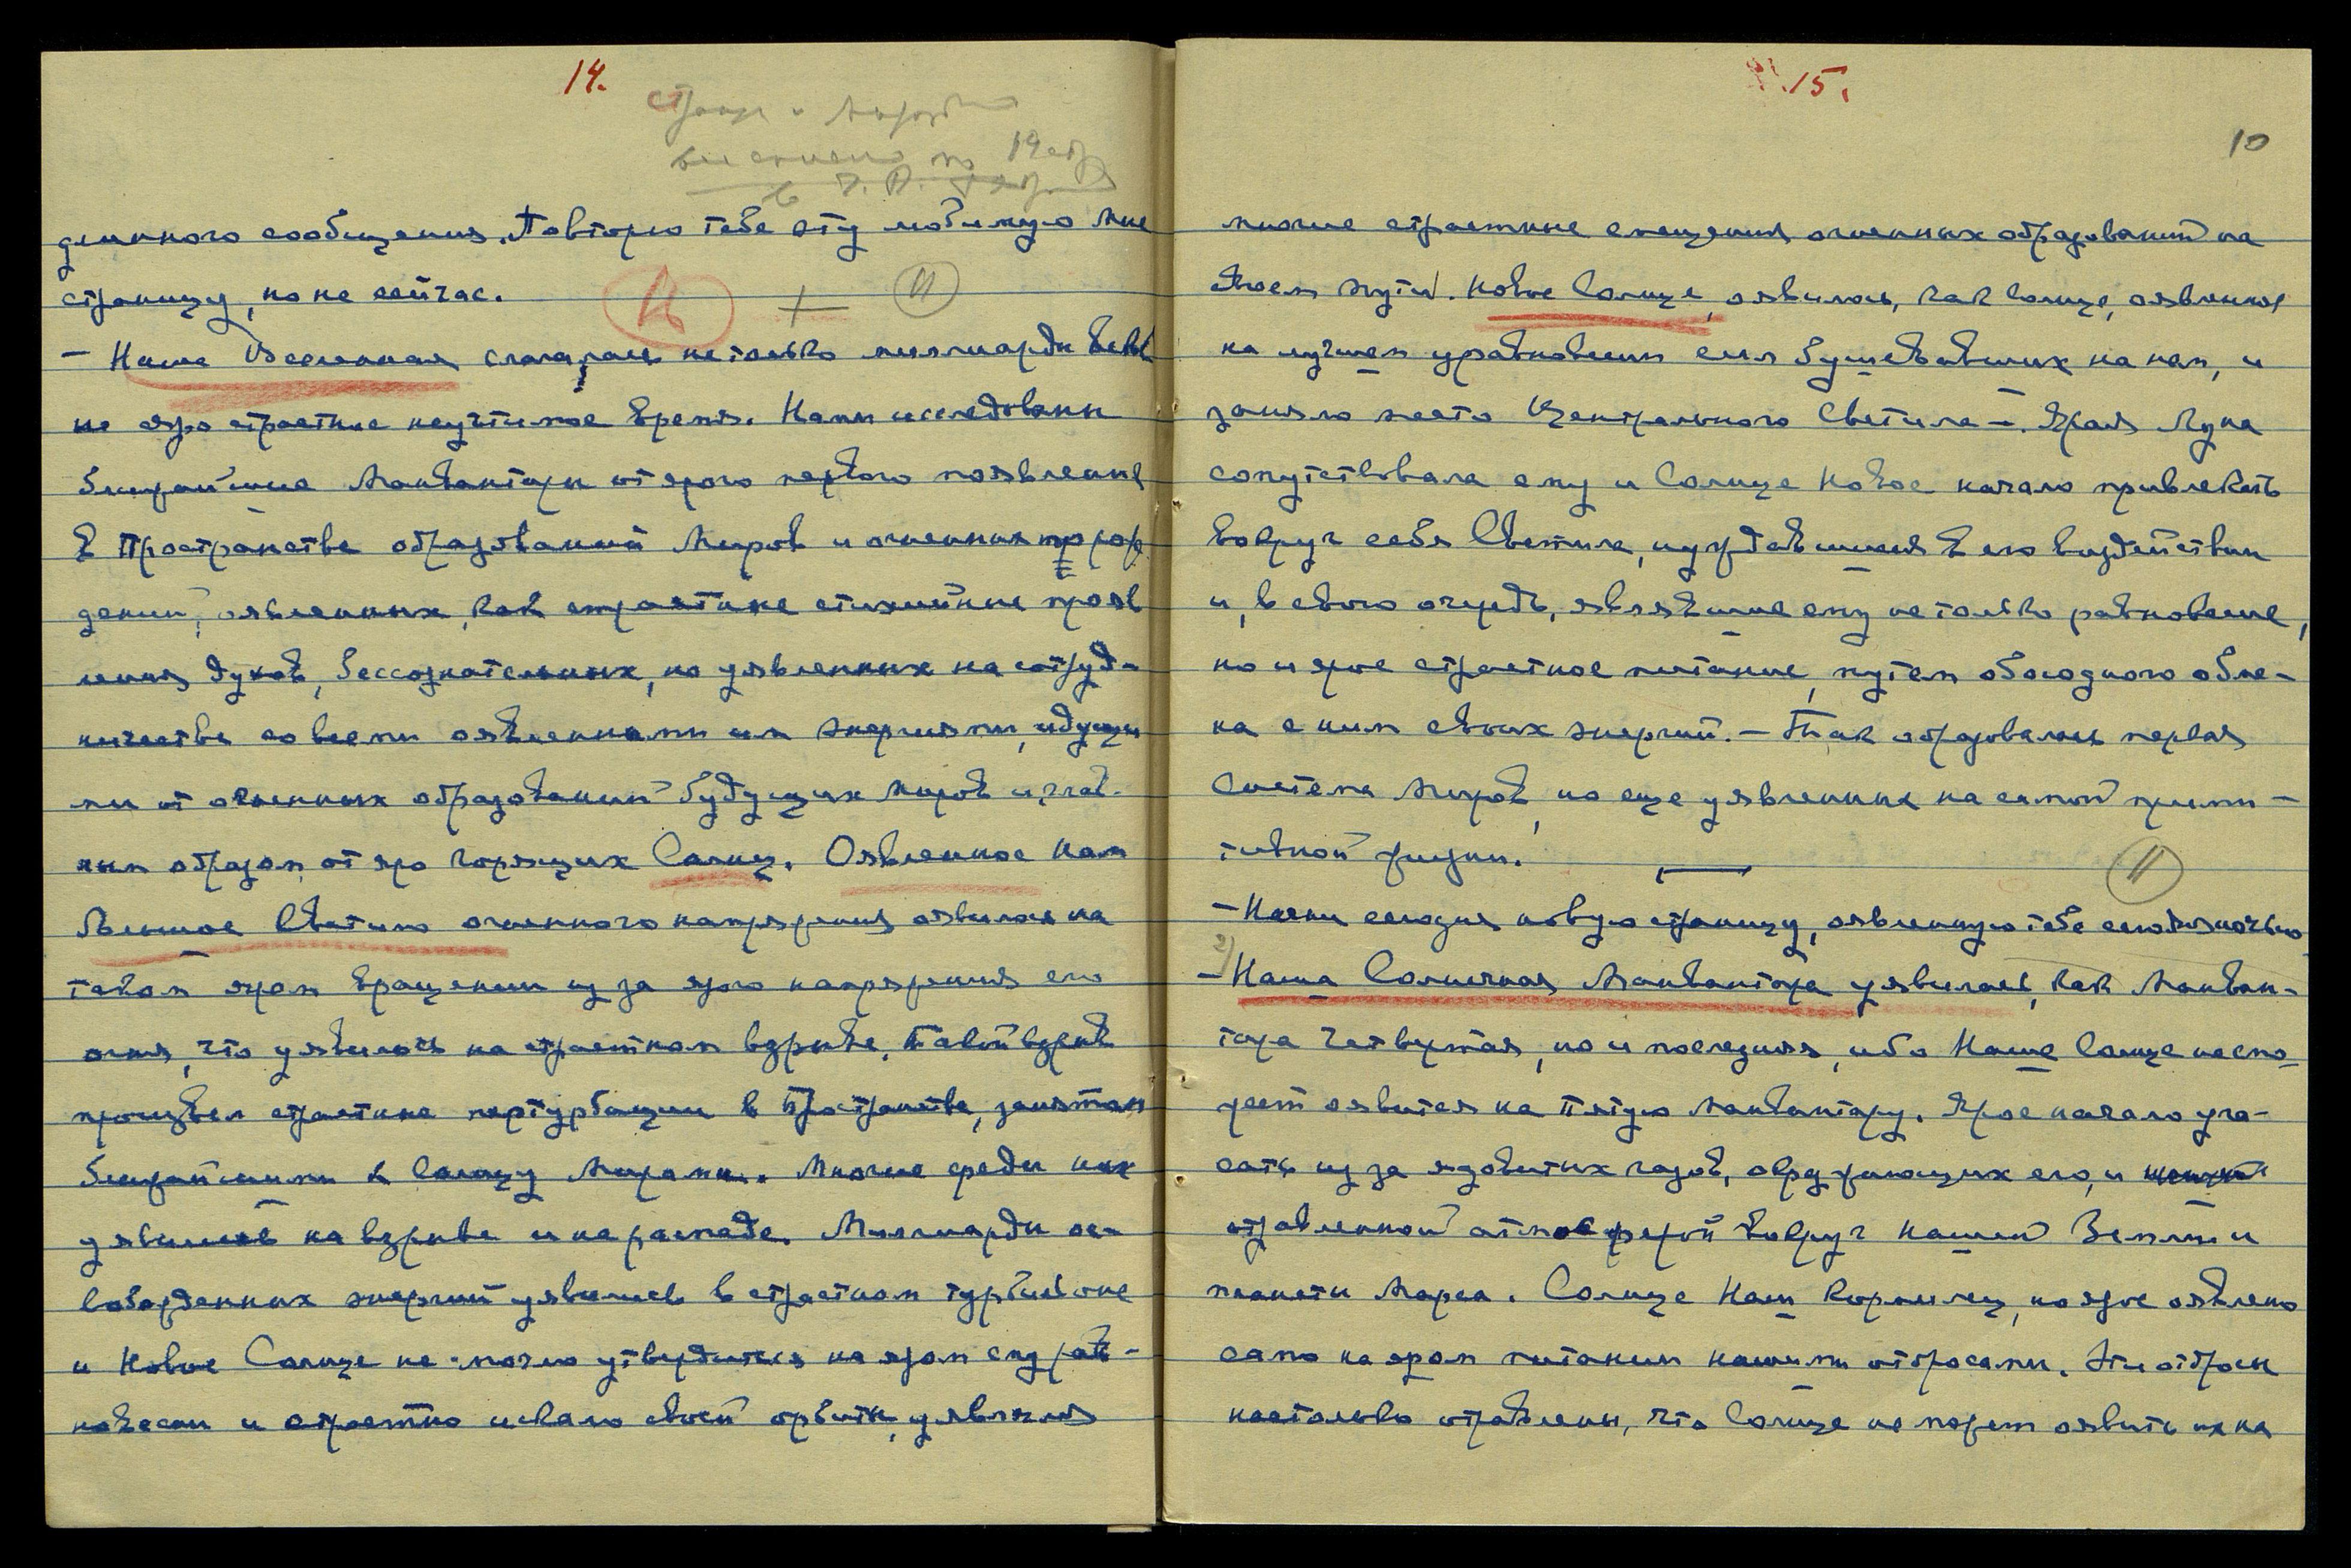 14.
19 стр
длинного сообщения. Повторю тебе эту любимую мне
страницу, но не сейчас.
+ 11
- Наша Вселенная слагалась не только миллиарды веков
но яро страстное неучтимое время. Нами исследованы
ближайшие Манвантары от ярого первого появления
в Пространстве образований Миров и огненных пророж
дений, оявленных, как страстные стихийные прояв
ления духов, бессознательных, но уявленных на сотруд-
ничестве со всеми оявленными им энергиями, идущи
ми от огненных образований будущих миров и, глав-
ным образом, от яро горящих Солнц. Оявленное нам
Светило огненного напряжения оявилось на
таком яром вращении из за ярого напряжения его
огня, что уявилось на страстном взрыве. Такой взрыв
произвел страстные пертурбации в Пространстве, занятом
ближайшими к Солнцу Мирами. Многие среди них
уявились на взрыве и на распаде. Миллиарды ос-
вобожденных энергий уявились в страстном турбильоне
и Новое Солнце не могло утвердиться на яром ему рав-
новесии и страстно искало своей орбиты, уявляя
15.
10
многие страстные смещения огненных образований на
своем пути. Новое Солнце, оявилось, как Солнце, оявленное
на лучшем уравновесии сил бушевавших на нем, и
заняло место Центрального Светила -. Ярая Луна
сопутствовала ему и Солнце Новое начало привлекать
вокруг себя Светила, нуждавшиеся в его воздействии
и, в свою очередь, являвшие ему не только равновесие,
но и ярое страстное питание, путем обоюдного обме-
на с ним своих энергий. - Так образовалась первая
Система Миров, но еще уявленная на самой прими-
тивной жизни.
11
- Начни сегодня новую страницу, оявленную тебе сегодня ночью
2)
- Наша Солнечная Манвантара уявилась, как Манван-
тара Четвертая, но и последняя, ибо Наше Солнце не смо-
жет оявиться на Пятую Манвантару. Ярое начало уга-
сать из за ядовитых газов, окружающих его, и
отравленной атмосферой вокруг нашей Земли и
планеты Марса. Солнце Наш Кормилец, но ярое оявлено
само на яром питании нашими отбросами. Эти отбросы
настолько отравлены, что Солнце не может оявить их на